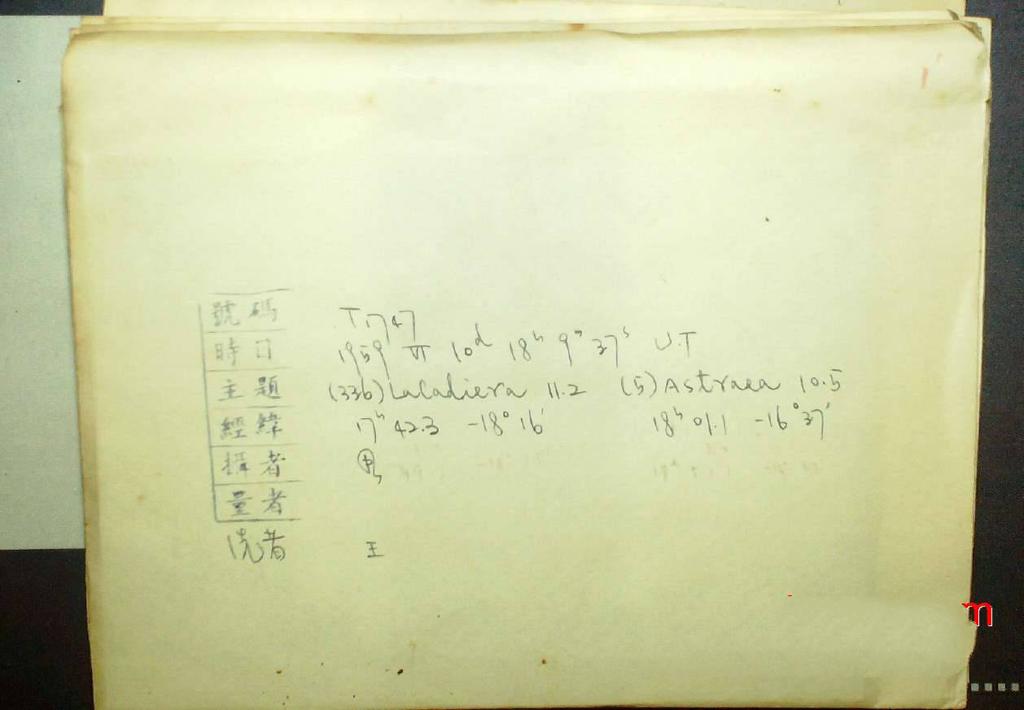 號碼 T1747
時日 1959 VI 10d 18h 9m 37s U.T
主題 (336) Lacadiera 11.2 (5) Astraea 10.5
經緯 17h 42.3 -18° 16' 18h 01.1 -16° 37'
攝者
量者
洗者 王
m